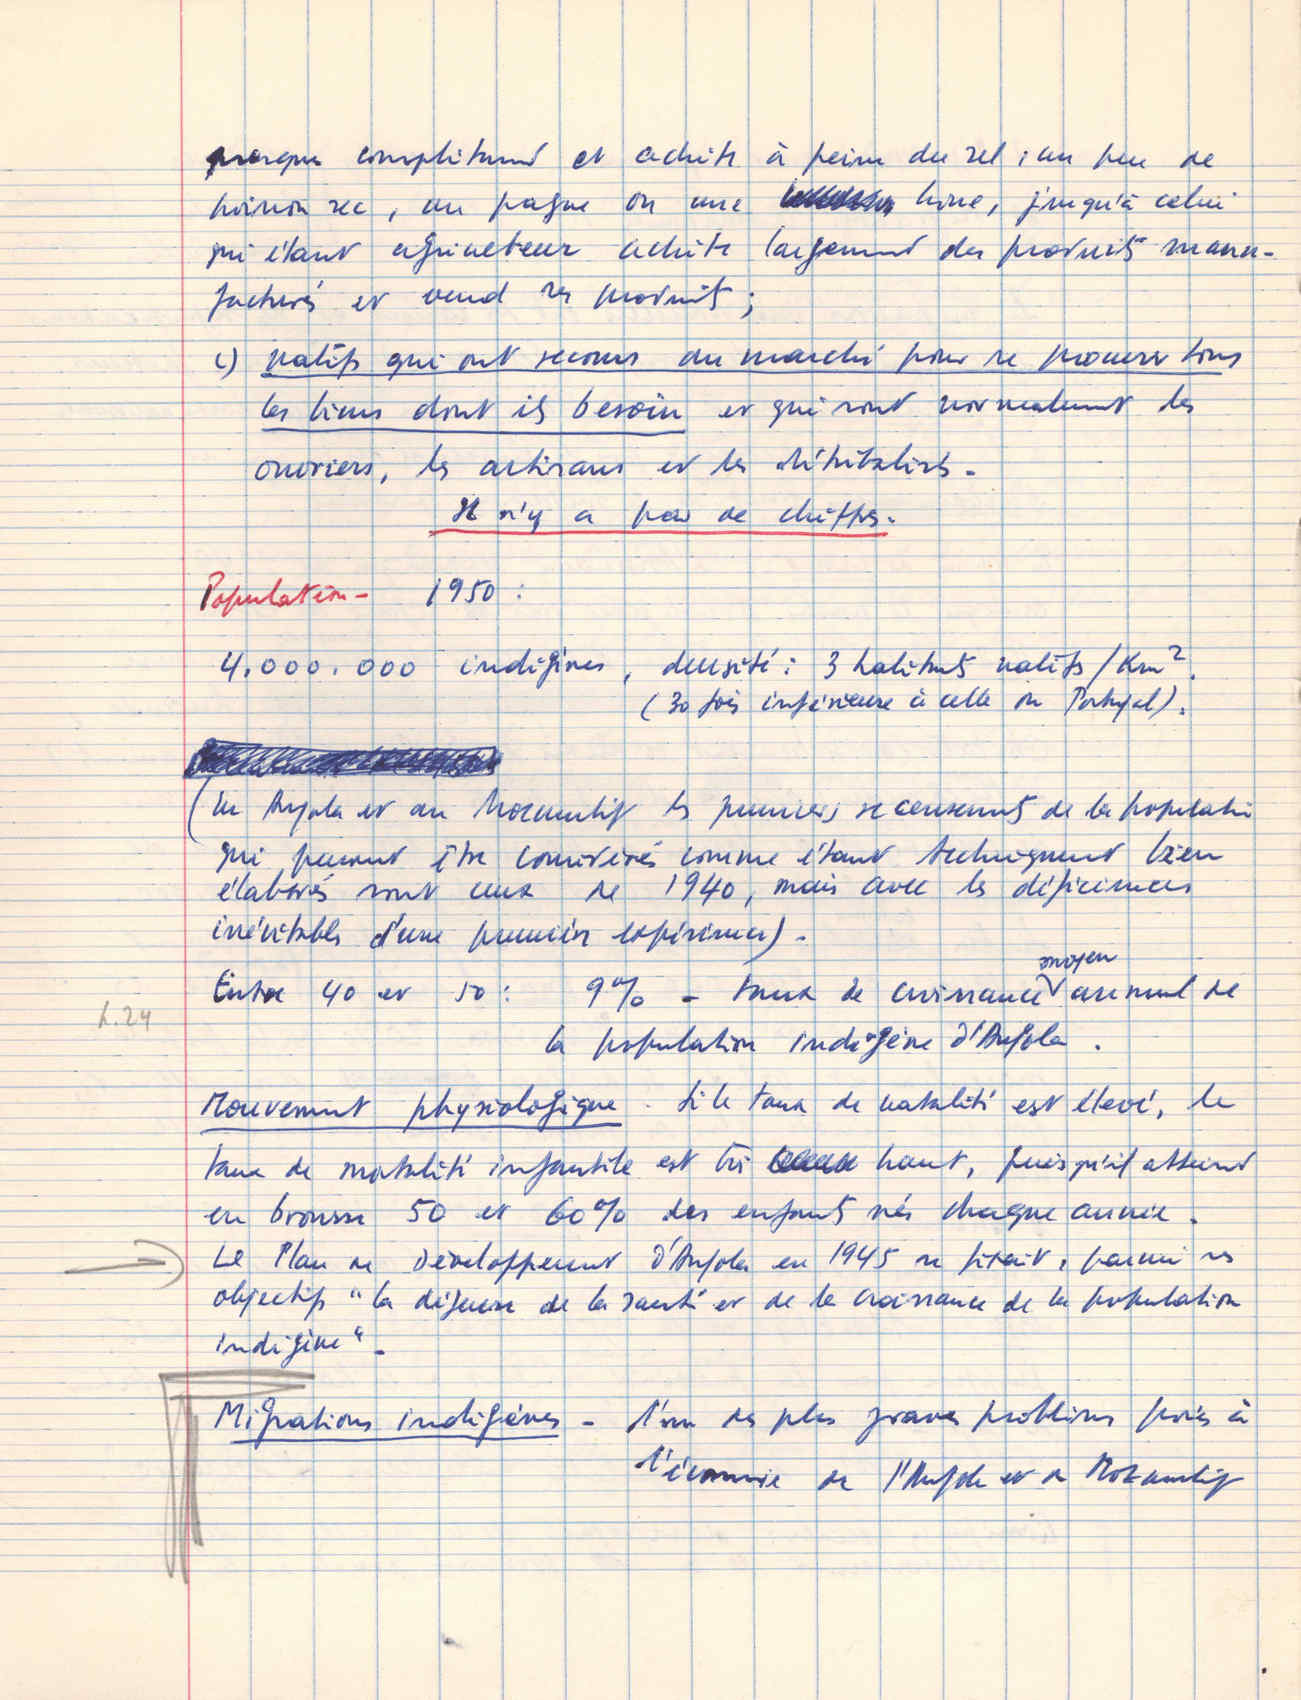 presque complètement et achète à peine du sel, un peu de
poisson sec, un pagne ou une houe, jusqu'à celui
qui étant agriculteur achète largement des produits manu-
facturés et vend ses produits ;
c) natifs qui ont recours au marché pour se procurer tous
les biens dont ils besoin et qui sont normalement les
ouvriers, les artisans et les détribalisés.
Il n'y a pas de chiffres.
Population - 1950 :
4.000.000 indigènes, densité : 3 habitants natifs / Km².
(30 fois inférieure à celle du Portugal).
(En Angola et au Mozambique les premiers recensements de la population
qui peuvent être considérés comme étant techniquement bien
élaborés sont ceux de 1940, mais avec les déficiences
inévitables d'une première expérience).
moyen
Entre 40 et 50 : 9% - taux de croissance annuel de
h.24
la population indigène d'Angola.
Mouvement physiologique. Si le taux de natalité est élevé, le
taux de mortalité infantile est très haut, puisqu'il atteint
en brousse 50 et 60% des enfants nés chaque année.
Le Plan de Développement d'Angola en 1945 se fixait, parmi ses
objectifs "la défense de la santé et de la croissance de la population
indigène".
Migrations indigènes - l'un des plus graves problèmes posés à
l'économie de l'Angola et du Mozambique